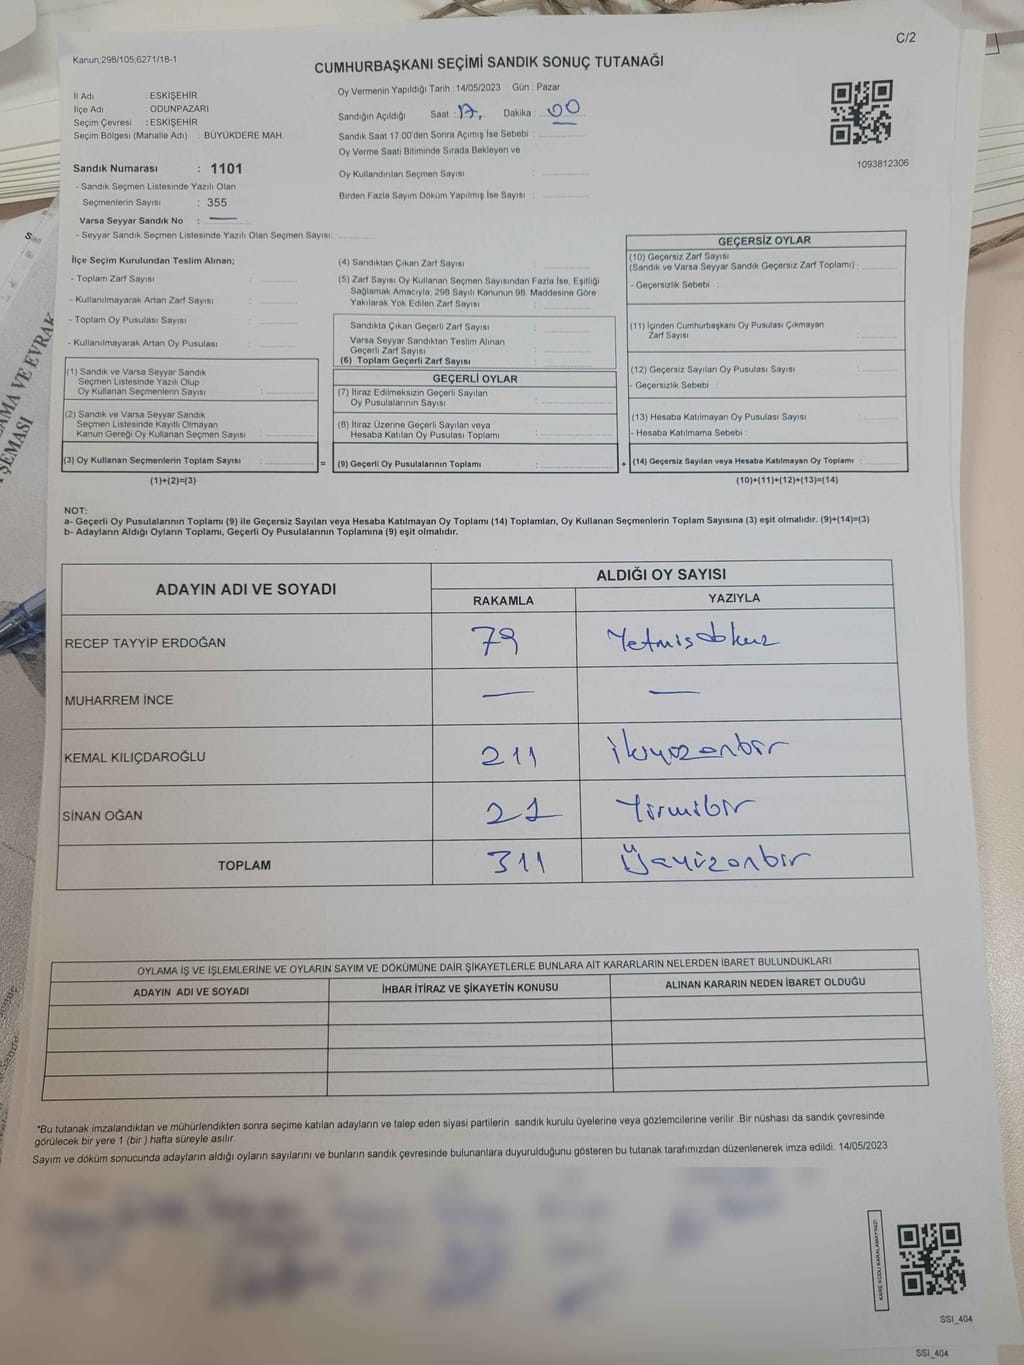 C/2
Kanun;298/105;6271/18-1
CUMHURBAŞKANI SEÇİMİ SANDIK SONUÇ TUTANAĞI
İl Adı : ESKİŞEHİR
İlçe Adı : ODUNPAZARI
Seçim Çevresi : ESKİŞEHİR
Seçim Bölgesi (Mahalle Adı) : BÜYÜKDERE MAH.
Sandık Numarası : 1101
- Sandık Seçmen Listesinde Yazılı Olan
Seçmenlerin Sayısı : 355
Varsa Seyyar Sandık No : —
- Seyyar Sandık Seçmen Listesinde Yazılı Olan Seçmen Sayısı:
Oy Vermenin Yapıldığı Tarih :14/05/2023 Gün : Pazar
Sandığın Açıldığı Saat : 17, Dakika : 00
Sandık Saat 17:00'den Sonra Açımış İse Sebebi :
Oy Verme Saati Bitiminde Sırada Bekleyen ve
Oy Kullandırılan Seçmen Sayısı :
Birden Fazla Sayım Döküm Yapılmış İse Sayısı :
1093812306
İlçe Seçim Kurulundan Teslim Alınan;
- Toplam Zarf Sayısı :
- Kullanılmayarak Artan Zarf Sayısı :
- Toplam Oy Pusulası Sayısı :
- Kullanılmayarak Artan Oy Pusulası :
(1) Sandık ve Varsa Seyyar Sandık
Seçmen Listesinde Yazılı Olup
Oy Kullanan Seçmenlerin Sayısı :
(2) Sandık ve Varsa Seyyar Sandık
Seçmen Listesinde Kayıtlı Olmayan
Kanun Gereği Oy Kullanan Seçmen Sayısı :
(3) Oy Kullanan Seçmenlerin Toplam Sayısı :
(1)+(2)=(3)
(4) Sandıktan Çıkan Zarf Sayısı :
(5) Zarf Sayısı Oy Kullanan Seçmen Sayısından Fazla İse, Eşitliği
Sağlamak Amacıyla, 298 Sayılı Kanunun 98. Maddesine Göre
Yakılarak Yok Edilen Zarf Sayısı :
Sandıkta Çıkan Geçerli Zarf Sayısı :
Varsa Seyyar Sandıktan Teslim Alınan
Geçerli Zarf Sayısı :
(6) Toplam Geçerli Zarf Sayısı :
GEÇERLİ OYLAR
(7) İtiraz Edilmeksizin Geçerli Sayılan
Oy Pusulalarının Sayısı :
(8) İtiraz Üzerine Geçerli Sayılan veya
Hesaba Katılan Oy Pusulası Toplamı :
= (9) Geçerli Oy Pusulalarının Toplamı : +
GEÇERSİZ OYLAR
(10) Geçersiz Zarf Sayısı
(Sandık ve Varsa Seyyar Sandık Geçersiz Zarf Toplamı) :
- Geçersizlik Sebebi :
(11) İçinden Cumhurbaşkanı Oy Pusulası Çıkmayan
Zarf Sayısı :
(12) Geçersiz Sayılan Oy Pusulası Sayısı :
- Geçersizlik Sebebi :
(13) Hesaba Katılmayan Oy Pusulası Sayısı :
- Hesaba Katılmama Sebebi :
(14) Geçersiz Sayılan veya Hesaba Katılmayan Oy Toplamı :
(10)+(11)+(12)+(13)=(14)
NOT:
a- Geçerli Oy Pusulalarının Toplamı (9) ile Geçersiz Sayılan veya Hesaba Katılmayan Oy Toplamı (14) Toplamları, Oy Kullanan Seçmenlerin Toplam Sayısına (3) eşit olmalıdır. (9)+(14)=(3)
b- Adayların Aldığı Oyların Toplamı, Geçerli Oy Pusulalarının Toplamına (9) eşit olmalıdır.
ADAYIN ADI VE SOYADI
ALDIĞI OY SAYISI
RAKAMLA YAZIYLA
RECEP TAYYİP ERDOĞAN 79 Yetmişdokuz
MUHARREM İNCE — —
KEMAL KILIÇDAROĞLU 211 ikiyüzonbir
SİNAN OĞAN 21 Yirmibir
TOPLAM 311 Üçyüzonbir
OYLAMA İŞ VE İŞLEMLERİNE VE OYLARIN SAYIM VE DÖKÜMÜNE DAİR ŞİKAYETLERLE BUNLARA AİT KARARLARIN NELERDEN İBARET BULUNDUKLARI
ADAYIN ADI VE SOYADI İHBAR İTİRAZ VE ŞİKAYETİN KONUSU ALINAN KARARIN NEDEN İBARET OLDUĞU
*Bu tutanak imzalandıktan ve mühürlendikten sonra seçime katılan adayların ve talep eden siyasi partilerin sandık kurulu üyelerine veya gözlemcilerine verilir .Bir nüshası da sandık çevresinde
görülecek bir yere 1 (bir ) hafta süreyle asılır.
Sayım ve döküm sonucunda adayların aldığı oyların sayılarını ve bunların sandık çevresinde bulunanlara duyurulduğunu gösteren bu tutanak tarafımızdan düzenlenerek imza edildi. 14/05/2023
KARE KODU KARALAMAYINIZ!
SSI_404
SSI_404
AMA VE EVRAK
ŞEMASI